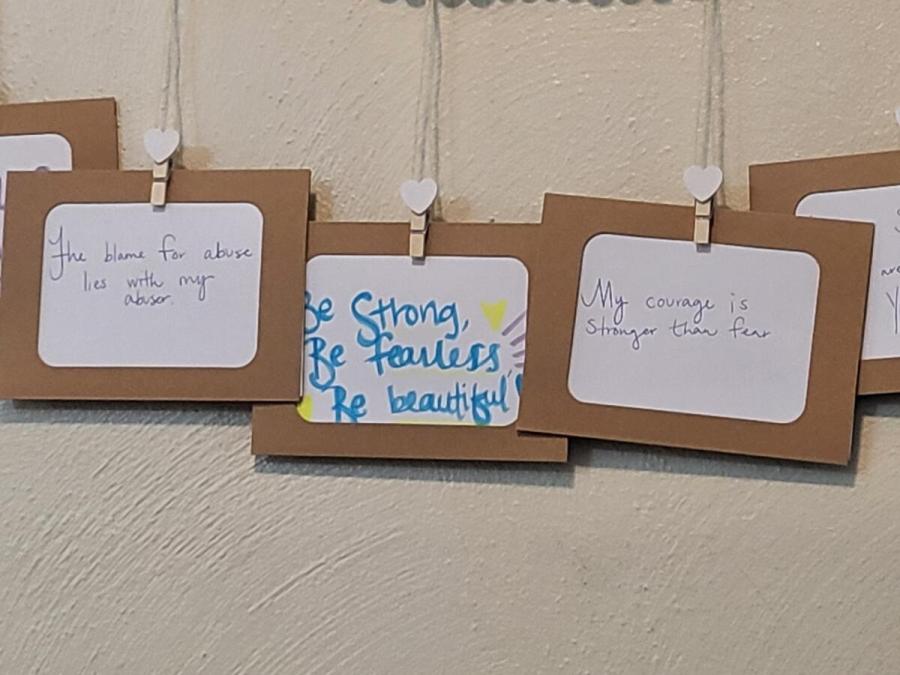 The blame for abuse
lies with my
abuser.
Be Strong,
Be fearless
Be beautiful!
My courage is
Stronger than fear